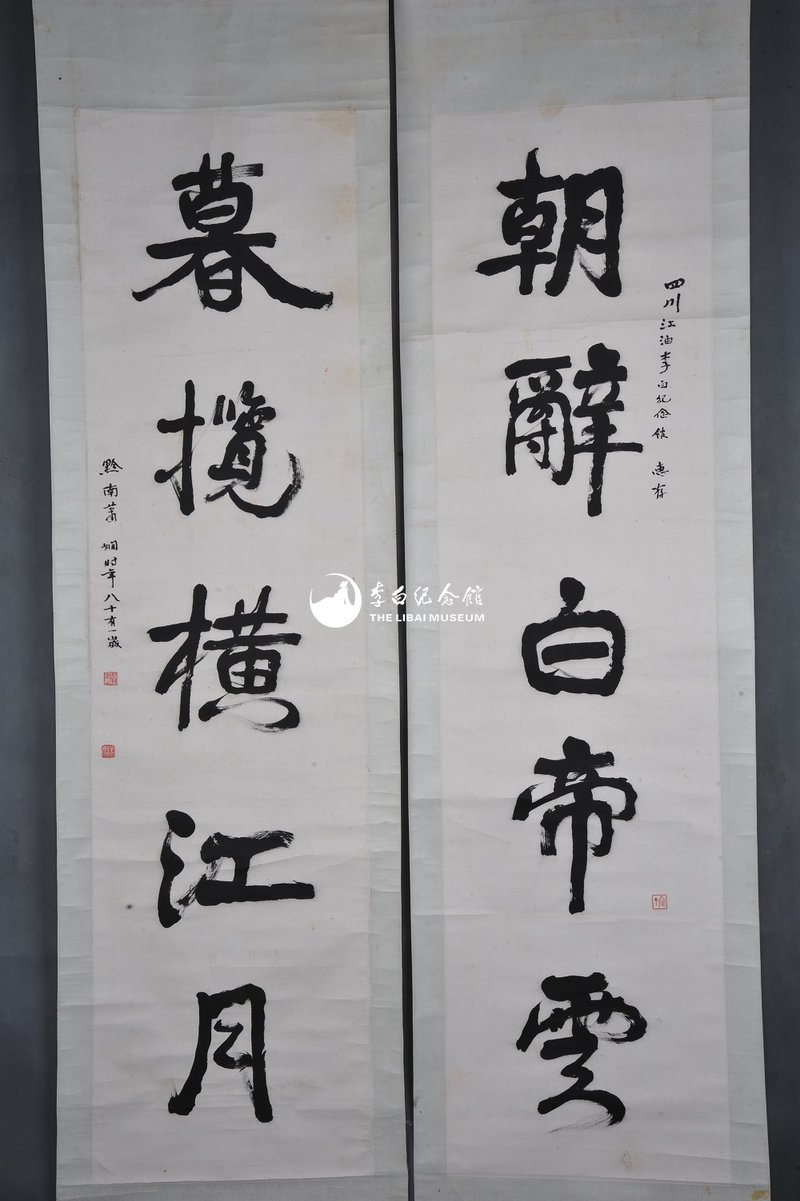 朝辭白帝雲
四川江油李白纪念馆 惠存
暮攬橫江月
黔南萧娴时年八十有一歲
李白纪念館
THE LIBAI MUSEUM